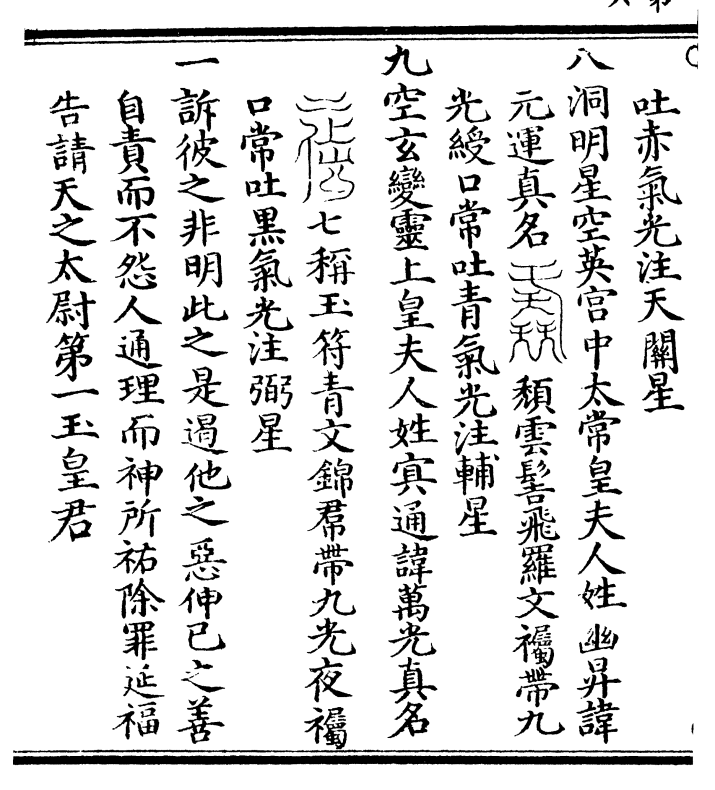 吐赤氣光注天關星
八洞明星空英宮中太常皇夫人姓幽昇諱
元運真名頹雲髻飛羅文襡帶九
光綬口常吐青氣光注輔星
九空玄變靈上皇夫人姓寘通諱萬光真名
七稱玉符青文錦帬帶九光夜襡
口常吐黒氣光注弼星
一訴彼之非明此之是遏他之惡伸己之善
自責而不怨人通理而神所祐除罪延福
告請天之太尉第一玉皇君